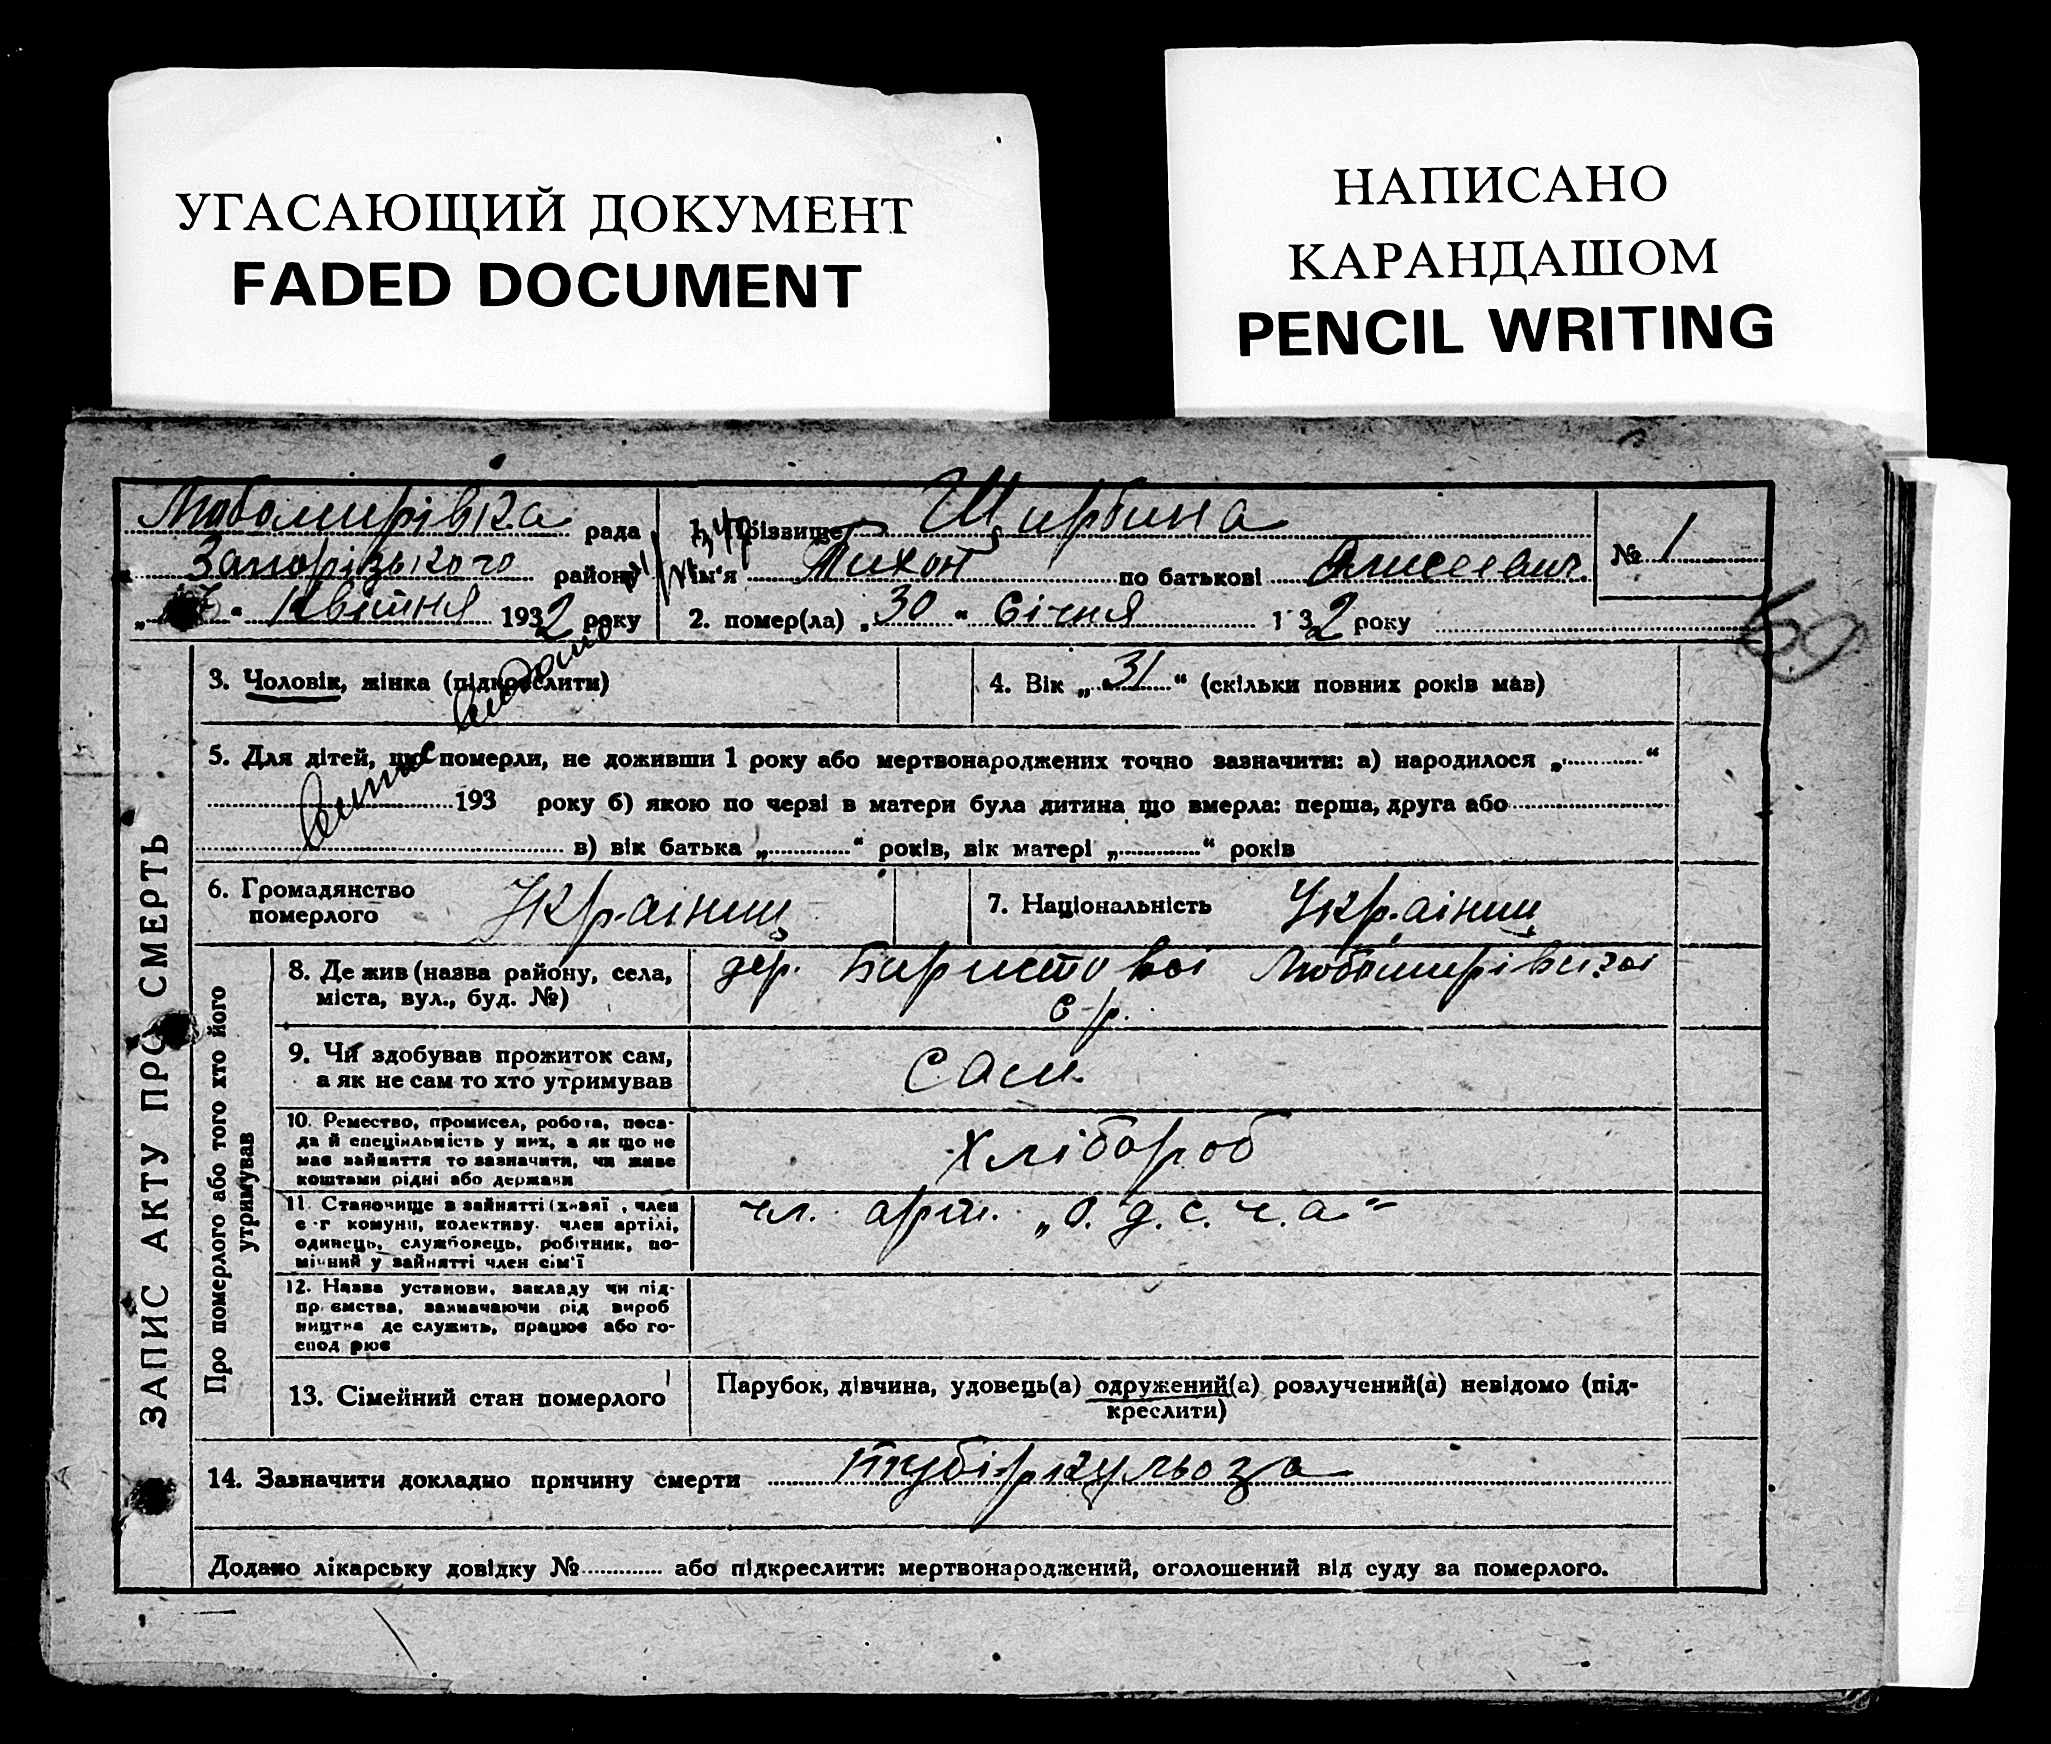 УГАСАЮЩИЙ ДОКУМЕНТ
FADED DOCUMENT
НАПИСАНО
КАРАНДАШОМ
PENCIL WRITING
Любомирівка рада
Запорізького району
„ 7 “ квітня 1932 року
1. Прізвище Щирбина
Ім'я Тихон по батькові Алисеевич
№ 1
2. помер(ла) „ 30 “ Січня 1932 року
69
ЗАПИС АКТУ ПРО СМЕРТЬ
3. Чоловік, жінка (підкреслити)
4. Вік „ 31 “ (скільки повних років мав)
видано
5. Для дітей, що померли, не доживши 1 року або мертвонароджених точно зазначити: а) народилося „ “
193 року б) якою по черві в матери була дитина що вмерла: перша, друга або
в) вік батька „ “ років, вік матері „ “ років
6. Громадянство
померлого
Українец
7. Національність
Українец
Про померлого або того хто його
утримував
8. Де жив (назва району, села,
міста, вул., буд. №)
дер. Любомирівської
с-р.
9. Чи здобував прожиток сам,
а як не сам то хто утримував
сам
10. Ремество, промисел, робота, поса-
да й спеціяльність у них, а як що не
має зайняття то зазначити, чи живе
коштами рідні або держави
хлібороб
11. Становище в зайнятті (хазяї, член
с-г комуни, колективу, член артілі,
одинець, службовець, робітник, по-
мічний у зайнятті член сім'ї
чл. арт. „О.д.с.ч.а“
12. Назва установи, закладу чи під-
пр ємства, зазначаючи рід вироб
ництва де служить, працює або го-
спод рює
13. Сімейний стан померлого
Парубок, дівчина, удовець(а) одружений(а) розлучений(а) невідомо (під-
креслити)
14. Зазначити докладно причину смерти тубіркульоза
Додано лікарську довідку № або підкреслити: мертвонароджений, оголошений від суду за померлого.